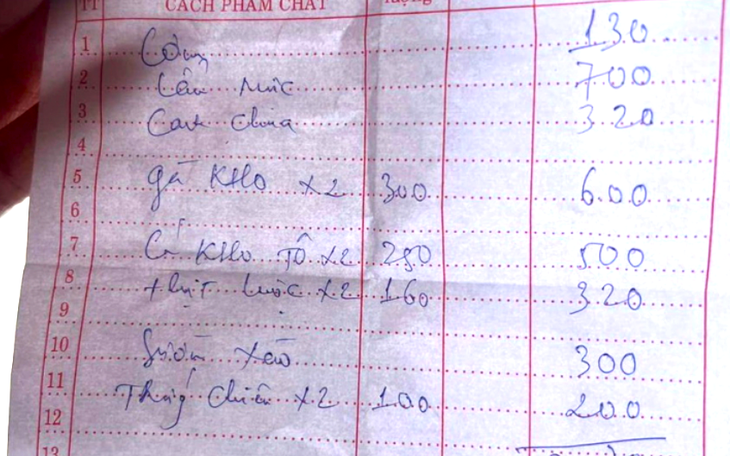 TT CÁCH PHẨM CHẤT lượng
1 Cơm 130
2 Lẩu 700
3 Canh chua 320
4
5 gà KHO x2 300 600
6
7 Cá KHO Tộ x2 250 500
8 thịt luộc x2 160 320
9
10 Sườn xào 300
11 Trứng chiên x2 100 200
12
13